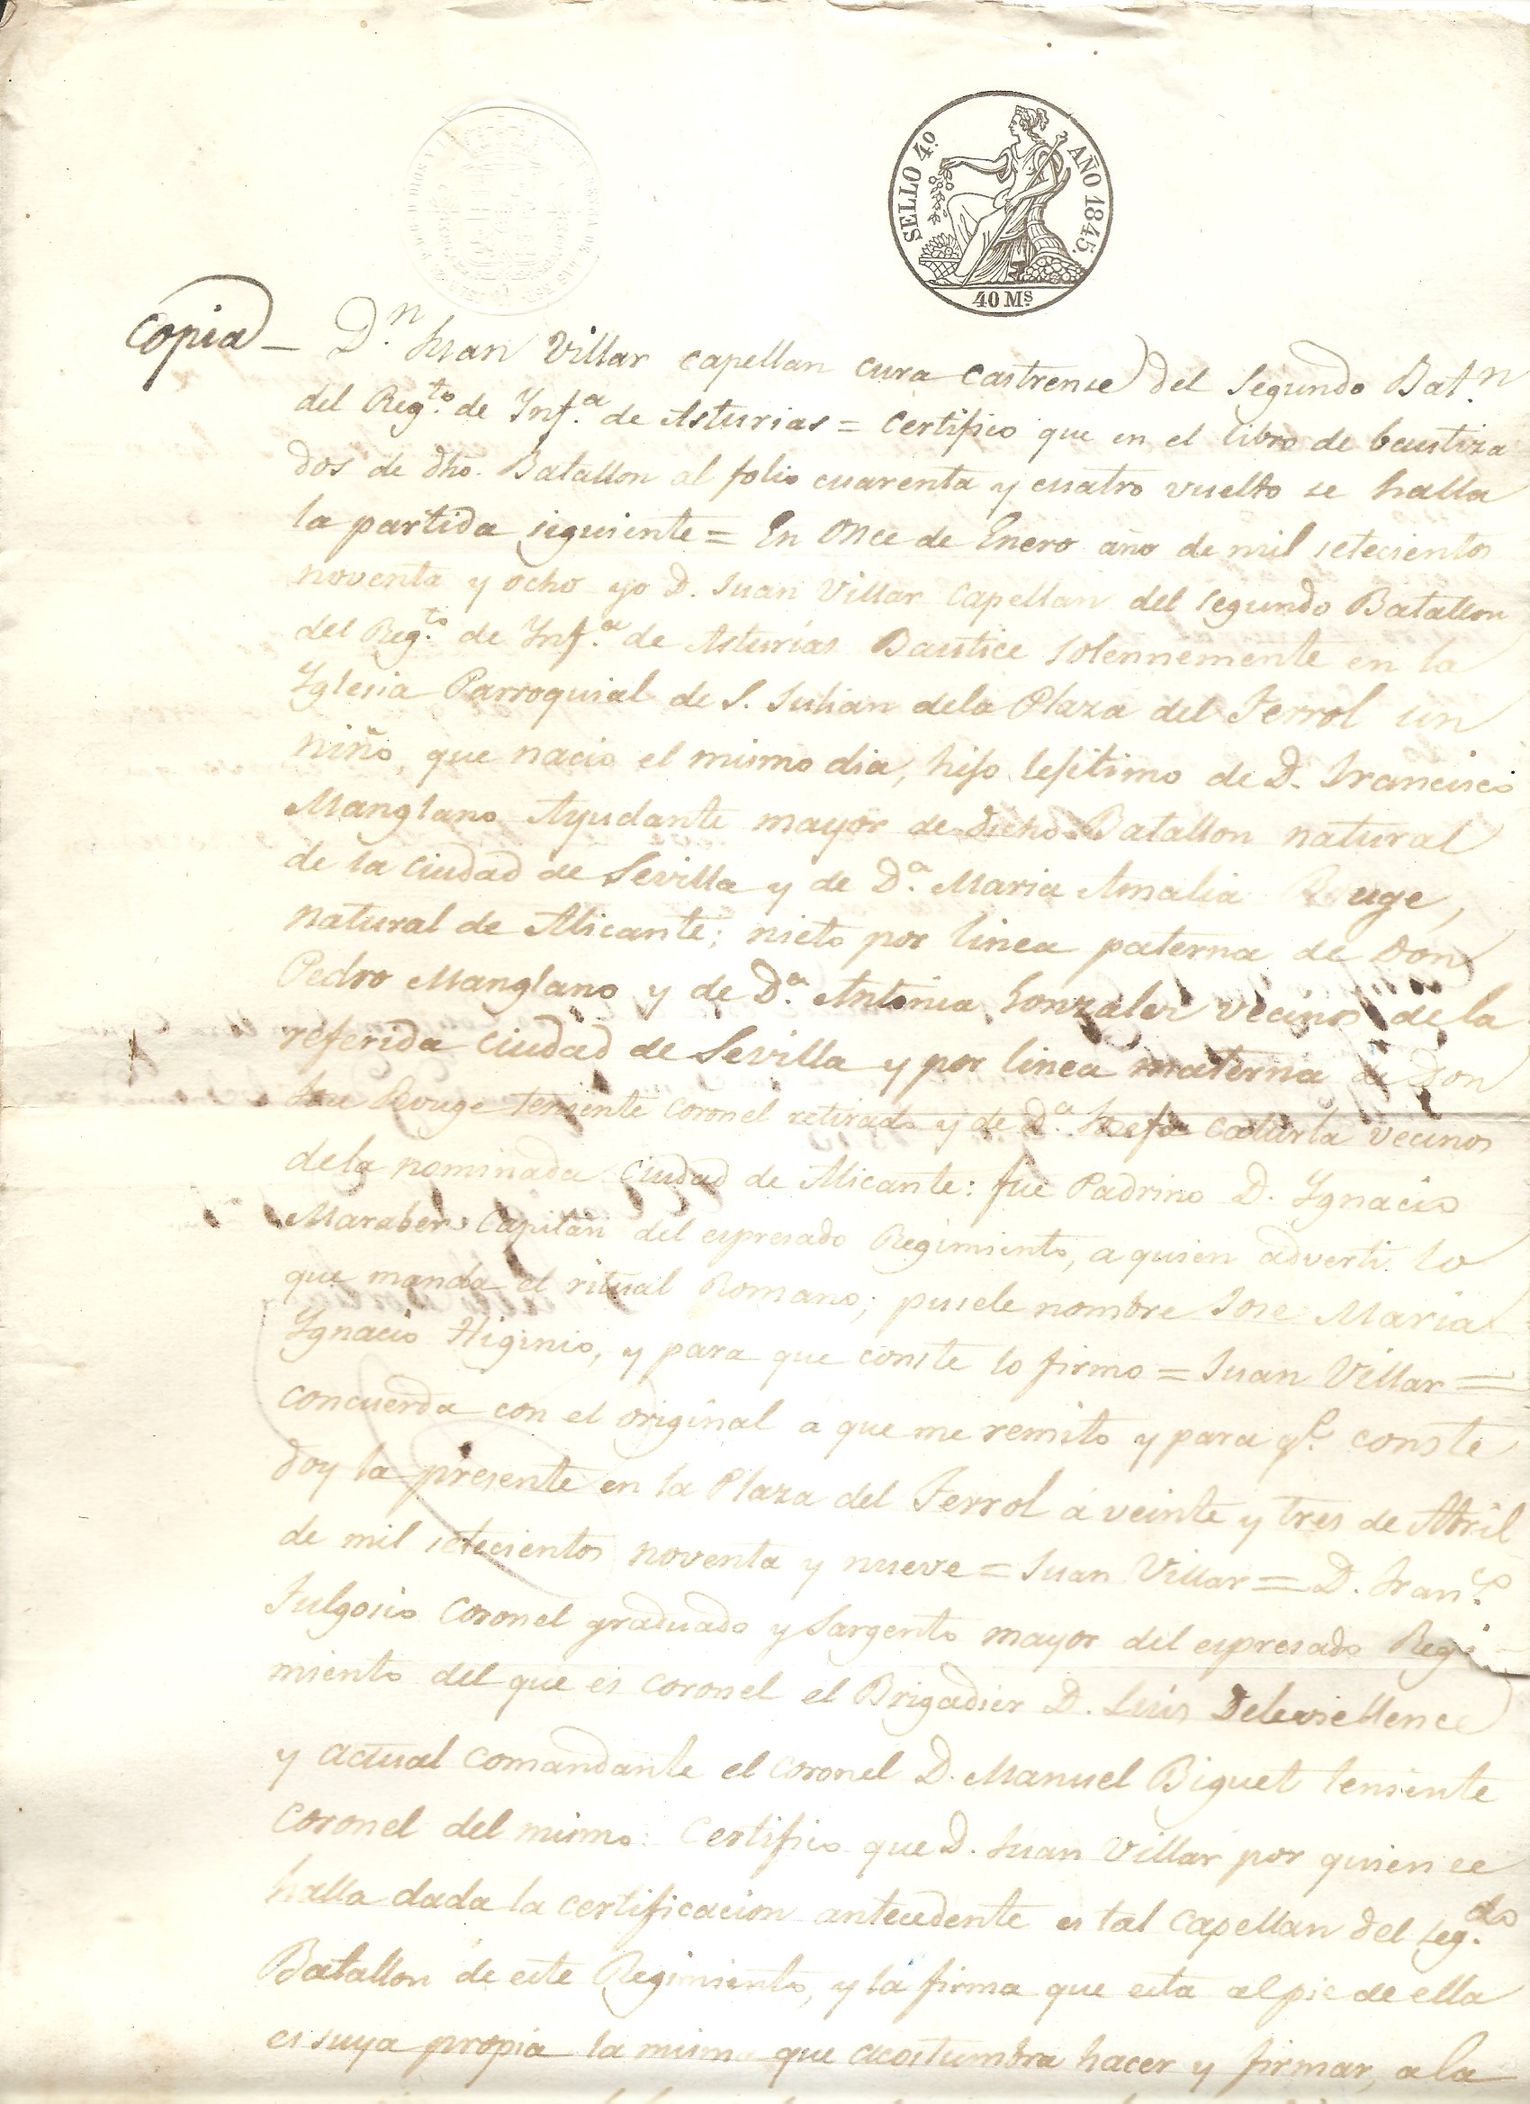 SELLO 4.º AÑO 1845.
40 Ms
Copia — D.n Juan Villar Capellan cura castrense del segundo Bat.n
del Reg.to de Ynf.a de Asturias = Certifico que en el libro de bautiza
dos de dho. Batallon al folio cuarenta y cuatro vuelto se halla
la partida siguiente = En once de Enero año de mil setecientos
noventa y ocho yo D. Juan Villar Capellan del segundo Batallon
del Reg.to de Ynf.a de Asturias Bautice solennemente en la
Yglesia Parroquial de S. Julian dela Plaza del Ferrol un
niño, que nacio el mismo dia, hijo lejitimo de D. Francisco
Manglano Ayudante mayor de dicho Batallon natural
de la ciudad de Sevilla y de D.a Maria Amalia Rouge,
natural de Alicante; nieto por linea paterna de Don
Pedro Manglano y de D.a Antonia Gonzalez vecinos de la
referida ciudad de Sevilla y por linea materna de Don
Rouge teniente coronel retirado y de D.a Josefa vecinos
dela nominada ciudad de Alicante: fue Padrino D. Ygnacio
Capitan del espresado Regimiento, a quien adverti lo
que manda el ritual Romano; pusele nombre Jose Maria
Ygnacio Higinio, y para que conste lo firmo = Juan Villar =
concuerda con el original a que me remito y para q.e conste
doy la presente en la Plaza del Ferrol á veinte y tres de Abril
de mil setecientos noventa y nueve = Juan Villar = D. Fran.co
Fulgosio Coronel graduado y Sargento mayor del espresado Regi
miento del que es coronel el Brigadier D. Luis
y actual comandante el coronel D. Manuel Biguet teniente
coronel del mismo: Certifico que D. Juan Villar por quien se
halla dada la certificacion antecedente es tal Capellan del seg.do
Batallon de este Regimiento, y la firma que esta al pie de ella
es suya propia la misma que acostumbra hacer y firmar, a la